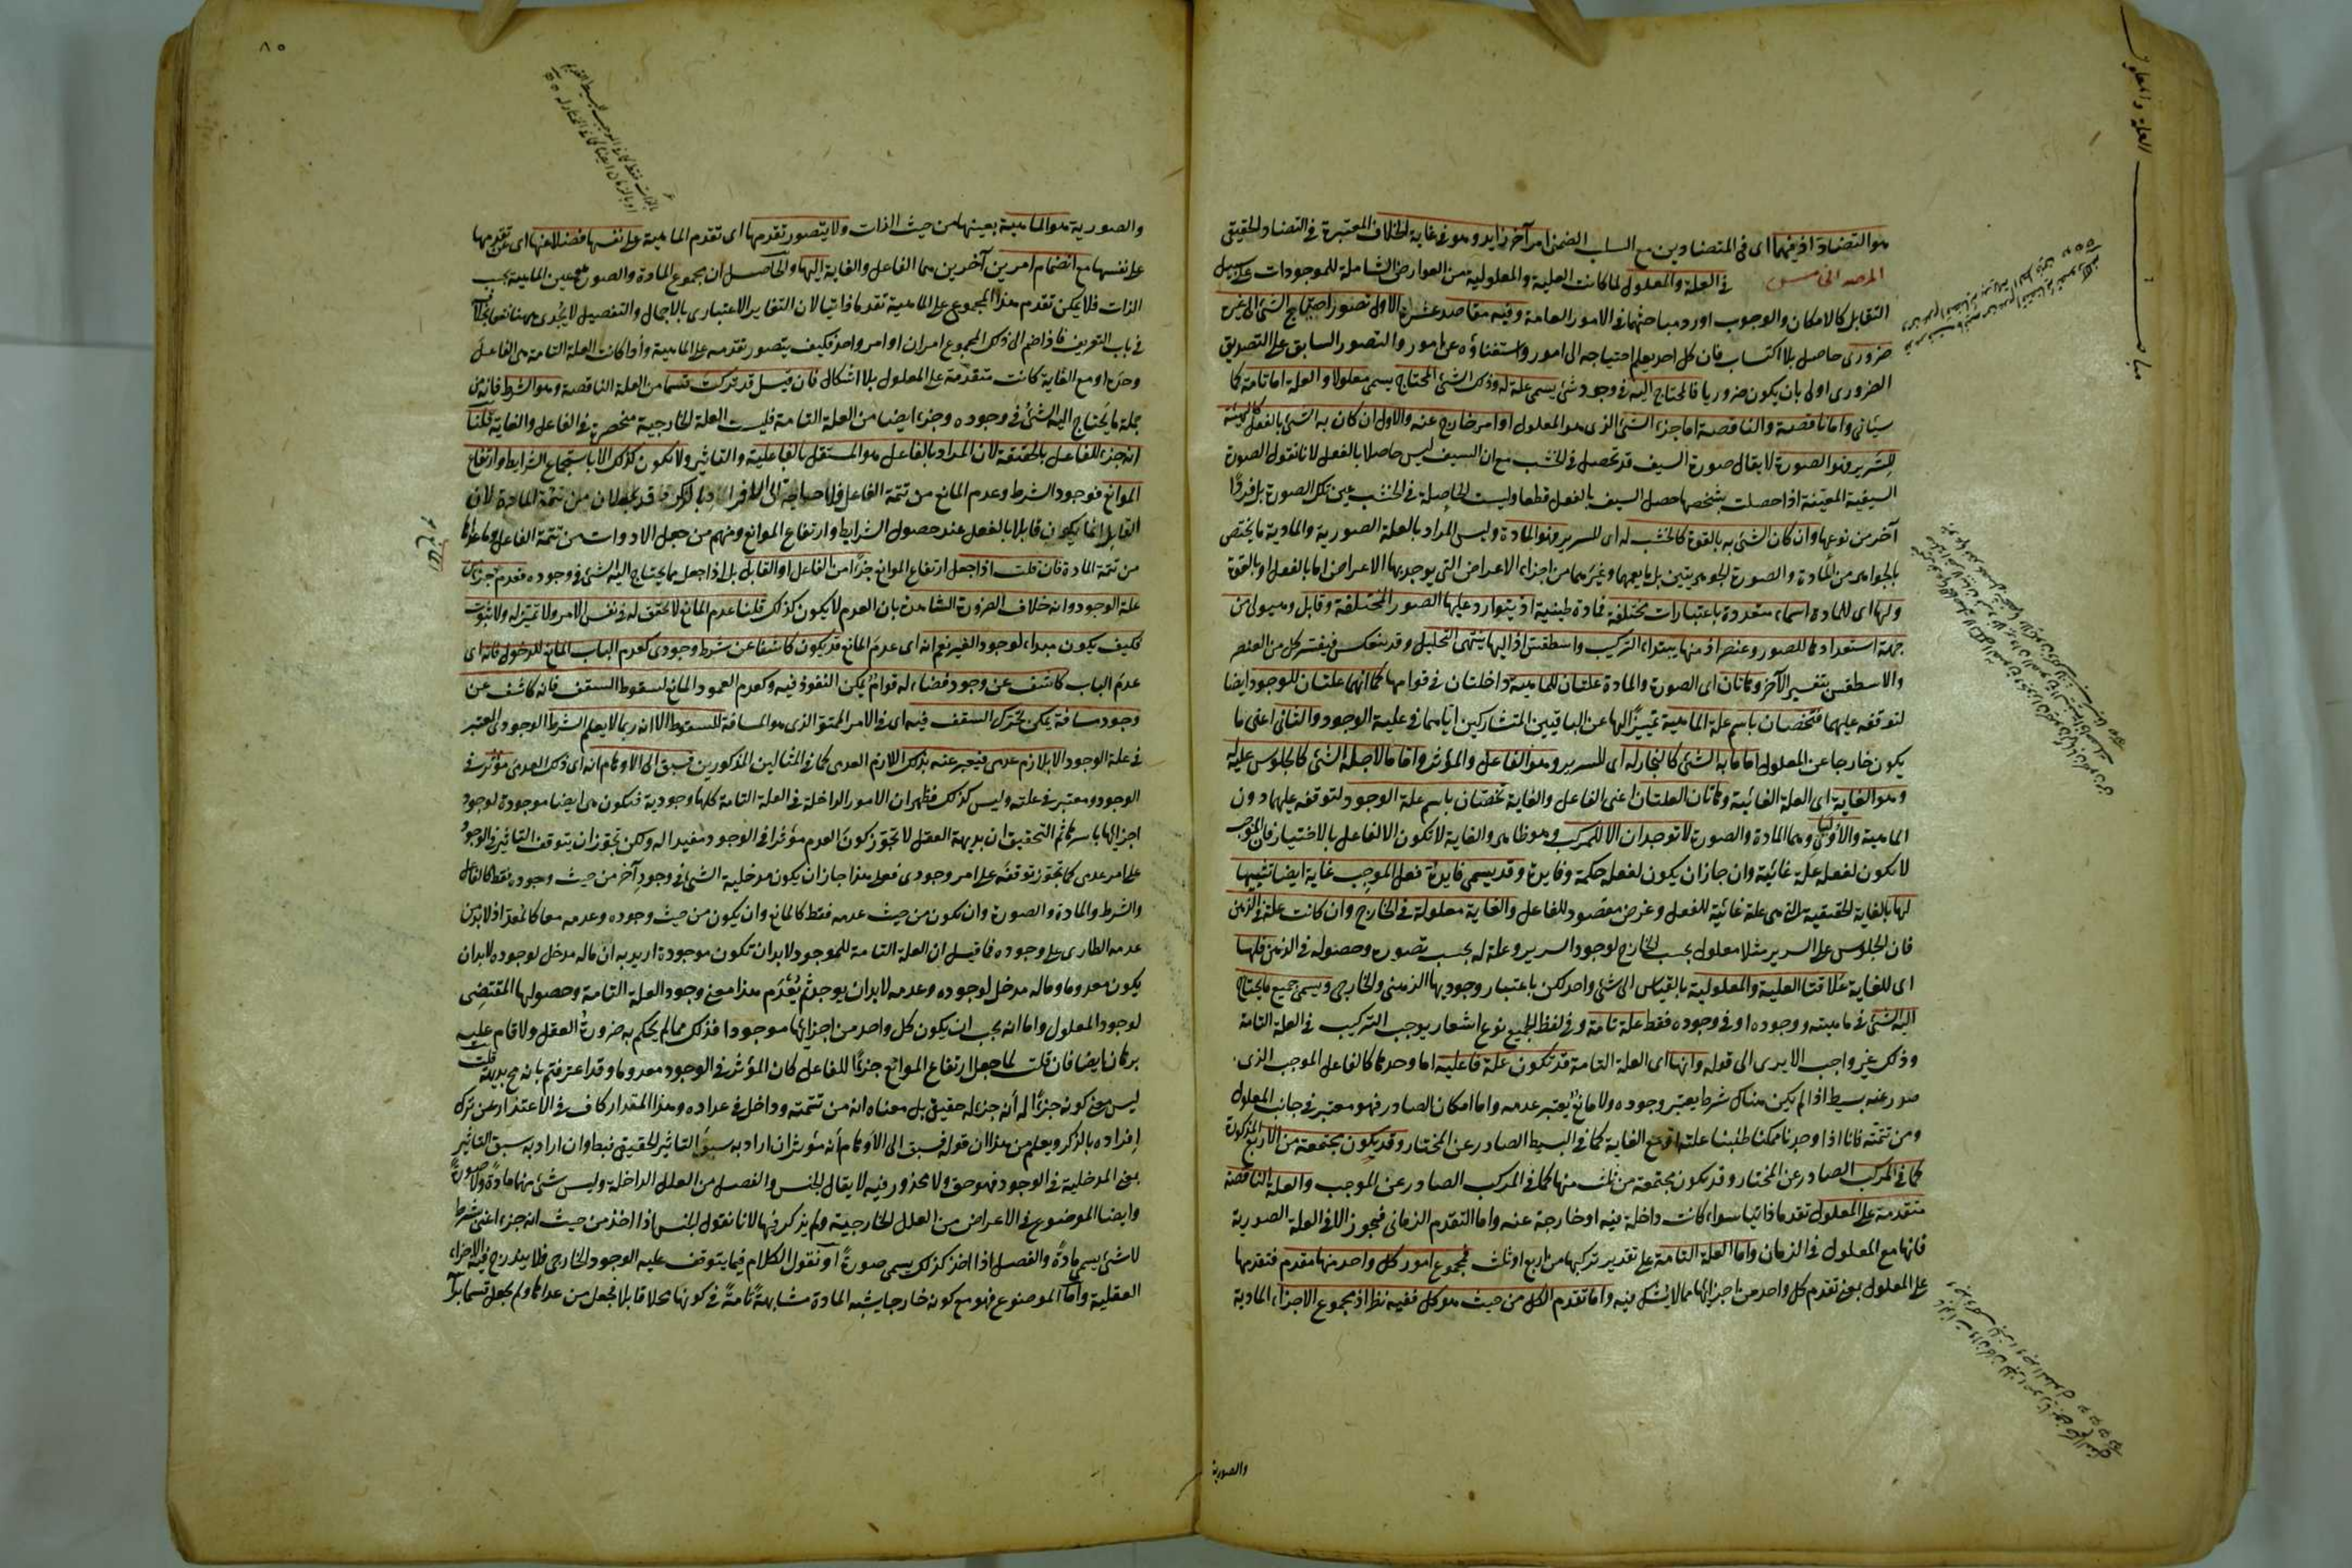 هو التضاد اذ فيهما اى فى المتضادين مع السلب الضمنى امر آخر زايد وهو فى غاية الخلاف المعتبرة فى التضاد الحقيقى
المرصد الخامس فى العلة والمعلول لما كانت العلية والمعلولية من العوارض الشاملة للموجودات على سبيل
التقابل كالامكان والوجوب اورد مباحثهما فى الامور العامة وفيه مقاصد عشرة الاول تصور احتياج الشئ الى غيره
ضرورى حاصل بلا اكتساب فان كل احد يعلم احتياجه الى امور واستغناؤه عن امور والتصور السابق على التصديق
الضرورى اولى بان يكون ضروريا فالمحتاج اليه فى وجود شئ يسمى علة له وذلك الشئ المحتاج يسمى معلولا والعلة اما تامة كما
سيأتى واما ناقصة والناقصة اما جزء الشئ الذى هو المعلول او امر خارج عنه والاول ان كان به الشئ بالفعل كالهيئة
للسرير فهو الصورة لا يقال صورة السيف قد تحصل فى الخشب مع ان السيف ليس حاصلا بالفعل لانا نقول الصورة
السيفية المعينة اذا حصلت بشخصها حصل السيف بالفعل قطعا وليست الحاصلة فى الخشب عين تلك الصورة بل فردا
آخر من نوعها وان كان الشئ به بالقوة كالخشب له اى للسرير فهو المادة وليس المراد بالعلة الصورية والمادية ما يختص
بالجواهر من المادة والصورة الجوهريتين بل ما يعمهما وغيرهما من اجزاء الاعراض التى يوجد بها الاعراض اما بالفعل او بالقوة
ولها اى للمادة اسماء متعددة باعتبارات مختلفة فمادة طينية اذ يتوارد عليها الصور المختلفة وقابل وهيولى من
جهة استعدادها للصور وعنصر اذ منها يبتداء التركيب واسطقس اذ اليها ينتهى التحليل وقد ينعكس فيفسر كل من العنصر
والاسطقس بتفسير الآخر وهاتان اى الصورة والمادة علتان للماهية داخلتان فى قوامها كما انهما علتان للوجود ايضا
لتوقفه عليهما فتختصان باسم علة الماهية تمييزا لها عن الباقيين المتشاركين اياهما فى علية الوجود والثانى اعنى ما
يكون خارجا عن المعلول اما ما به الشئ كالنجار له اى للسرير وهو الفاعل والمؤثر واما ما لاجله الشئ كالجلوس عليه له
وهو الغاية اى العلة الغائية وهاتان العلتان اعنى الفاعل والغاية تختصان باسم علة الوجود لتوقفه عليهما دون
الماهية والأوليان وهما المادة والصورة لا توجدان الا للمركب وهو ظاهر والغاية لا تكون الا لفاعل بالاختيار فان الموجب
لا يكون لفعله علة غائية وان جاز ان يكون لفعله حكمة وفايدة وقد يسمى فايدة فعل الموجب غاية ايضا تشبيها
لها بالغاية الحقيقية التى هى علة غائية للفعل وغرض مقصود للفاعل والغاية معلولة فى الخارج وان كانت علة فى الذهن
فان الجلوس على السرير مثلا معلول بحسب الخارج لوجود السرير وعلة له بحسب تصوره وحصوله فى الذهن فلها
اى للغاية علاقتا العلية والمعلولية بالقياس الى شئ واحد لكن باعتبار وجوديها الذهنى والخارجى ويسمى جميع ما يحتاج
اليه الشئ فى ماهيته ووجوده او فى وجوده فقط علة تامة وفى لفظ الجميع نوع اشعار بوجب التركيب فى العلة التامة
وذلك غير واجب الا يرى الى قوله وانها اى العلة التامة قد تكون علة فاعلية اما وحدها كالفاعل الموجب الذى
صدر عنه بسيط اذا لم يكن هناك شرط يعتبر وجوده ولا مانع يعتبر عدمه واما امكان الصادر فهو معتبر فى جانب المعلول
ومن تتمته فانا اذا وجدنا ممكنا طلبنا علته او مع الغاية كما فى البسيط الصادر عن المختار وقد يكون مجتمعة من الاربع المذكورة
كما فى المركب الصادر عن المختار وقد تكون مجتمعة من ثلث منها كما فى المركب الصادر عن الموجب والعلة الناقصة
متقدمة على المعلول تقدما ذاتيا سواء كانت داخلة فيه او خارجة عنه واما التقدم الزمانى فيجوز الا فى العلة الصورية
فانها مع المعلول فى الزمان واما العلة التامة على تقدير تركبها من اربع او ثلث فمجموع امور كل واحد منها مقدم فتقدمها
على المعلول بمعنى تقدم كل واحد من اجزائها مما لا يشك فيه واما تقدم الكل من حيث هو كل ففيه نظر اذ مجموع الاجزاء المادية
والصورية
٨٥
والصورية هو الماهية بعينها من حيث الذات ولا يتصور تقدمها اى تقدم الماهية على نفسها فضلا عنها اى عن تقدمها
على نفسها مع انضمام امرين آخرين هما الفاعل والغاية اليها والحاصل ان مجموع المادة والصورة عين الماهية بحسب
الذات فلا يمكن تقدم هذا المجموع على الماهية تقدما ذاتيا لان التغاير الاعتبارى بالاجمال والتفصيل لا يجدى ههنا نفعا بخلاف
فى باب التعريف فاذا ضم الى ذلك المجموع امران او امر واحد فكيف يتصور تقدمه على الماهية واذا كانت العلة التامة هى الفاعل
وحده او مع الغاية كانت متقدمة على المعلول بلا اشكال فان قيل قد تركت قسما من العلة الناقصة وهو الشرط فانه من
جملة ما يحتاج اليه الشئ فى وجوده وجزء ايضا من العلة التامة فليست العلة الخارجية منحصرة فى الفاعل والغاية قلنا
انه جزء للفاعل بالحقيقة لان المراد بالفاعل هو المستقل بالفاعلية والتاثير ولا يكون كذلك الا باستجماع الشرايط وارتفاع
الموانع فوجود الشرط وعدم المانع من تتمة الفاعل فلا حاجة الى الافراد بالذكر وقد يجعلان من تتمة المادة لان
القابل انما يكون قابلا بالفعل عند حصول الشرايط وارتفاع الموانع ومنهم من جعل الادوات من تتمة الفاعل وما عداها
من تتمة المادة فان قلت اذا جعل ارتفاع الموانع جزءا من الفاعل او القابل بل اذا جعل مما يحتاج اليه الشئ فى وجوده فعدم جزء من
علة الوجود وانه خلاف الضرورة الشاهدة بان العدم لا يكون كذلك قلنا عدم المانع لا تحقق له فى نفس الامر ولا تميز له ولا ثبوت
فكيف يكون مبداء لوجود الغير نعم انه اى عدم المانع قد يكون كاشفا عن شرط وجودى كعدم الباب المانع للدخول فانه اى
عدم الباب كاشف عن وجود فضاء له قوام يمكن النفوذ فيه وكعدم العمود المانع لسقوط السقف فانه كاشف عن
وجود مسافة يمكن تحرك السقف فيه اى فى الامر الممتد الذى هو المسافة للسقوط الا انه ربما لا يعلم الشرط الوجودى المعتبر
فى علة الوجود الا بلازم عدمى فيعبر عنه بذلك اللازم العدمى كما فى المثالين المذكورين فيسبق الى الاوهام انه اى ذلك العدمى مؤثر فى
الوجود ومعتبر فى علته وليس كذلك فظهر ان الامور الداخلة فى العلة التامة كلها وجودية فتكون هى ايضا موجودة لوجود
اجزائها باسرها ثم التحقيق ان بديهة العقل لا تجوز كون العدم مؤثرا فى الوجود مفيدا له ولكن تجوز ان يتوقف التاثير فى الوجود
على امر عدمى كما تجوز توقفه على امر وجودى فعلى هذا جاز ان يكون مدخلية الشئ فى وجود آخر من حيث وجوده فقط كالفاعل
والشرط والمادة والصورة وان يكون من حيث عدمه فقط كالمانع وان يكون من حيث وجوده وعدمه معا كالمعد اذ لابد من
عدمه الطارى على وجوده فما قيل ان العلة التامة للموجود لابد ان تكون موجودة اريد به ان ما له مدخل لوجوده لابد ان
يكون معدوما وما له مدخل لوجوده وعدمه لابد ان يوجد ثم يعدم هذا معنى وجود العلة التامة وحصولها المقتضى
لوجود المعلول واما انه يجب ان يكون كل واحد من اجزائها موجودا فذلك مما لم يحكم به ضرورة العقل ولا قام عليه
برهان ايضا فان قلت لما جعل ارتفاع الموانع جزءا للفاعل كان المؤثر فى الوجود معدوما وقد اعترفتم بانه مح بديهة قلت
ليس معنى كونه جزءا له أنه جزء له حقيقى بل معناه انه من تتمته وداخل فى عداده وهذا المقدار كاف فى الاعتذار عن ترك
افراده بالذكر ويعلم من هذا ان قوله فيسبق الى الأوهام أنه مؤثر ان اراد به سبق التاثير الحقيقى فباطل وان اراد به سبق التاثير
بمعنى المدخلية فى الوجود فهو حق ولا محذور فيه لا يقال الجنس والفصل من العلل الداخلة وليس شئ منهما مادة ولا صورة
وايضا الموضوع فى الاعراض من العلل الخارجية ولم يذكر فيها لانا نقول الجنس اذا اخذ من حيث انه جزء اعنى بشرط
لا شئ يسمى مادة والفصل اذا اخذ كذلك يسمى صورة أو نقول الكلام فيما يتوقف عليه الوجود الخارجى فلا يندرج فيه الاجزاء
العقلية وأما الموضوع فهو مع كونه خارجا يشبه المادة مشابهة تامة فى كونها محلا قابلا فجعل من عدادها ولم يجعل قسما برأسه